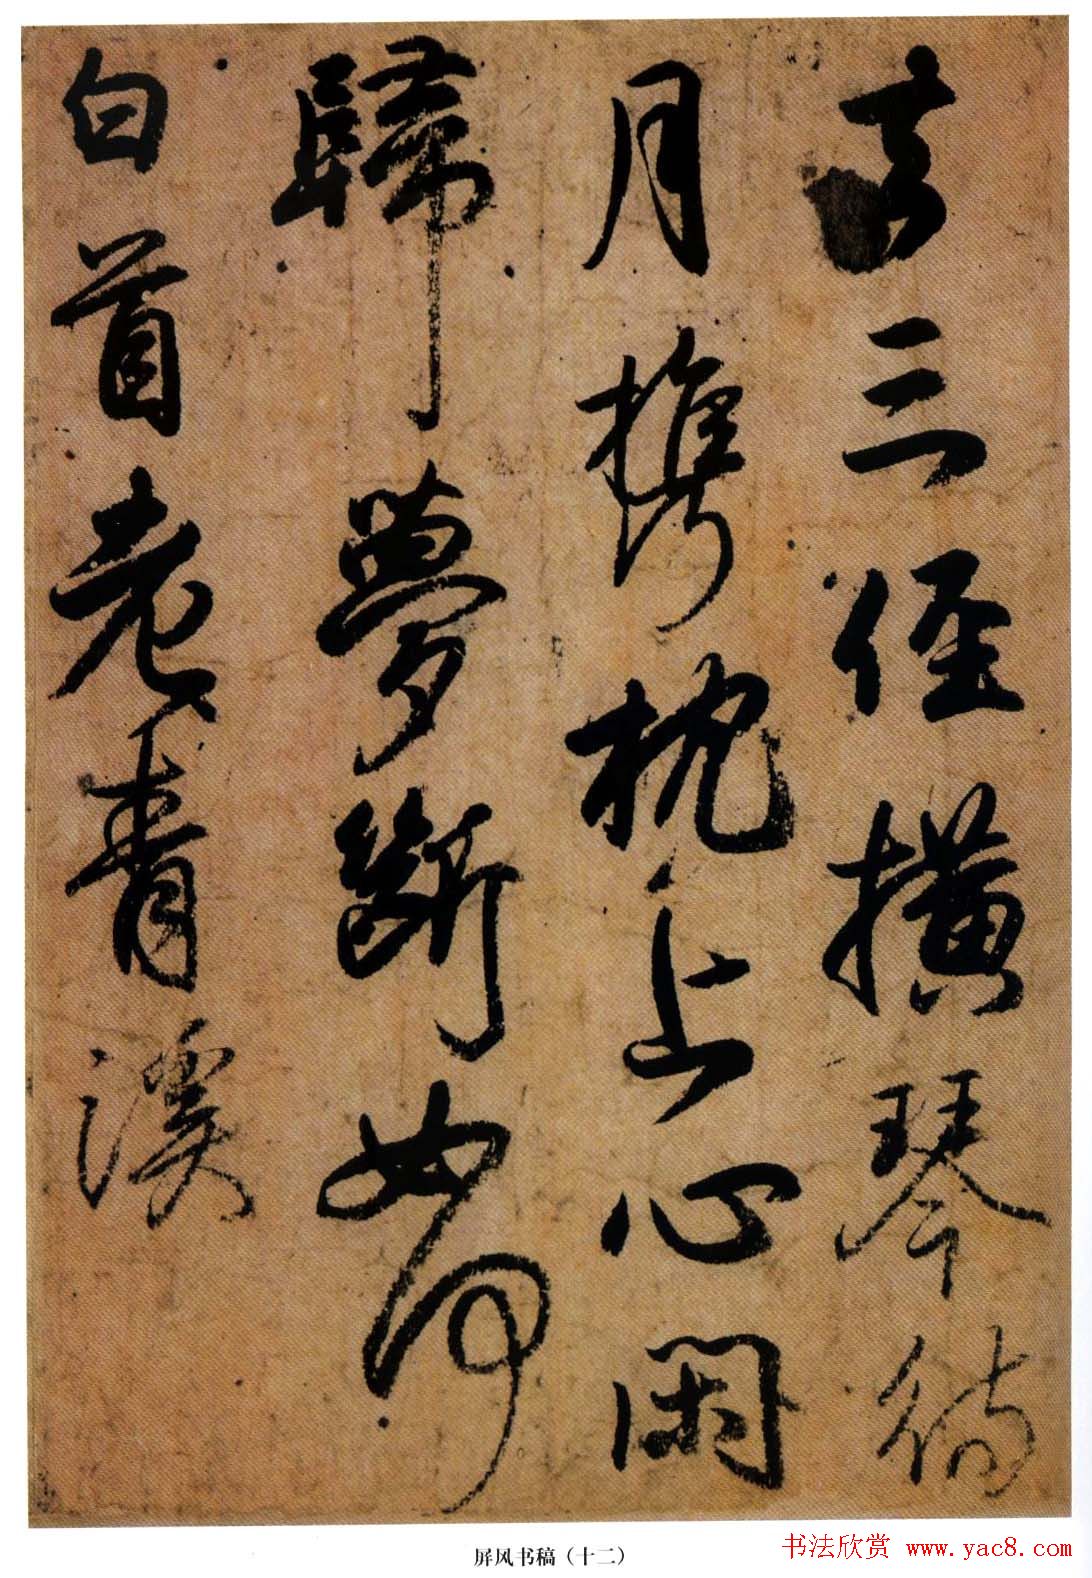 去三徑橫琴待
月攜枕上心閑
歸夢斷如何
白首老青溪
屏风书稿（十二）
书法欣赏 www.yac8.com